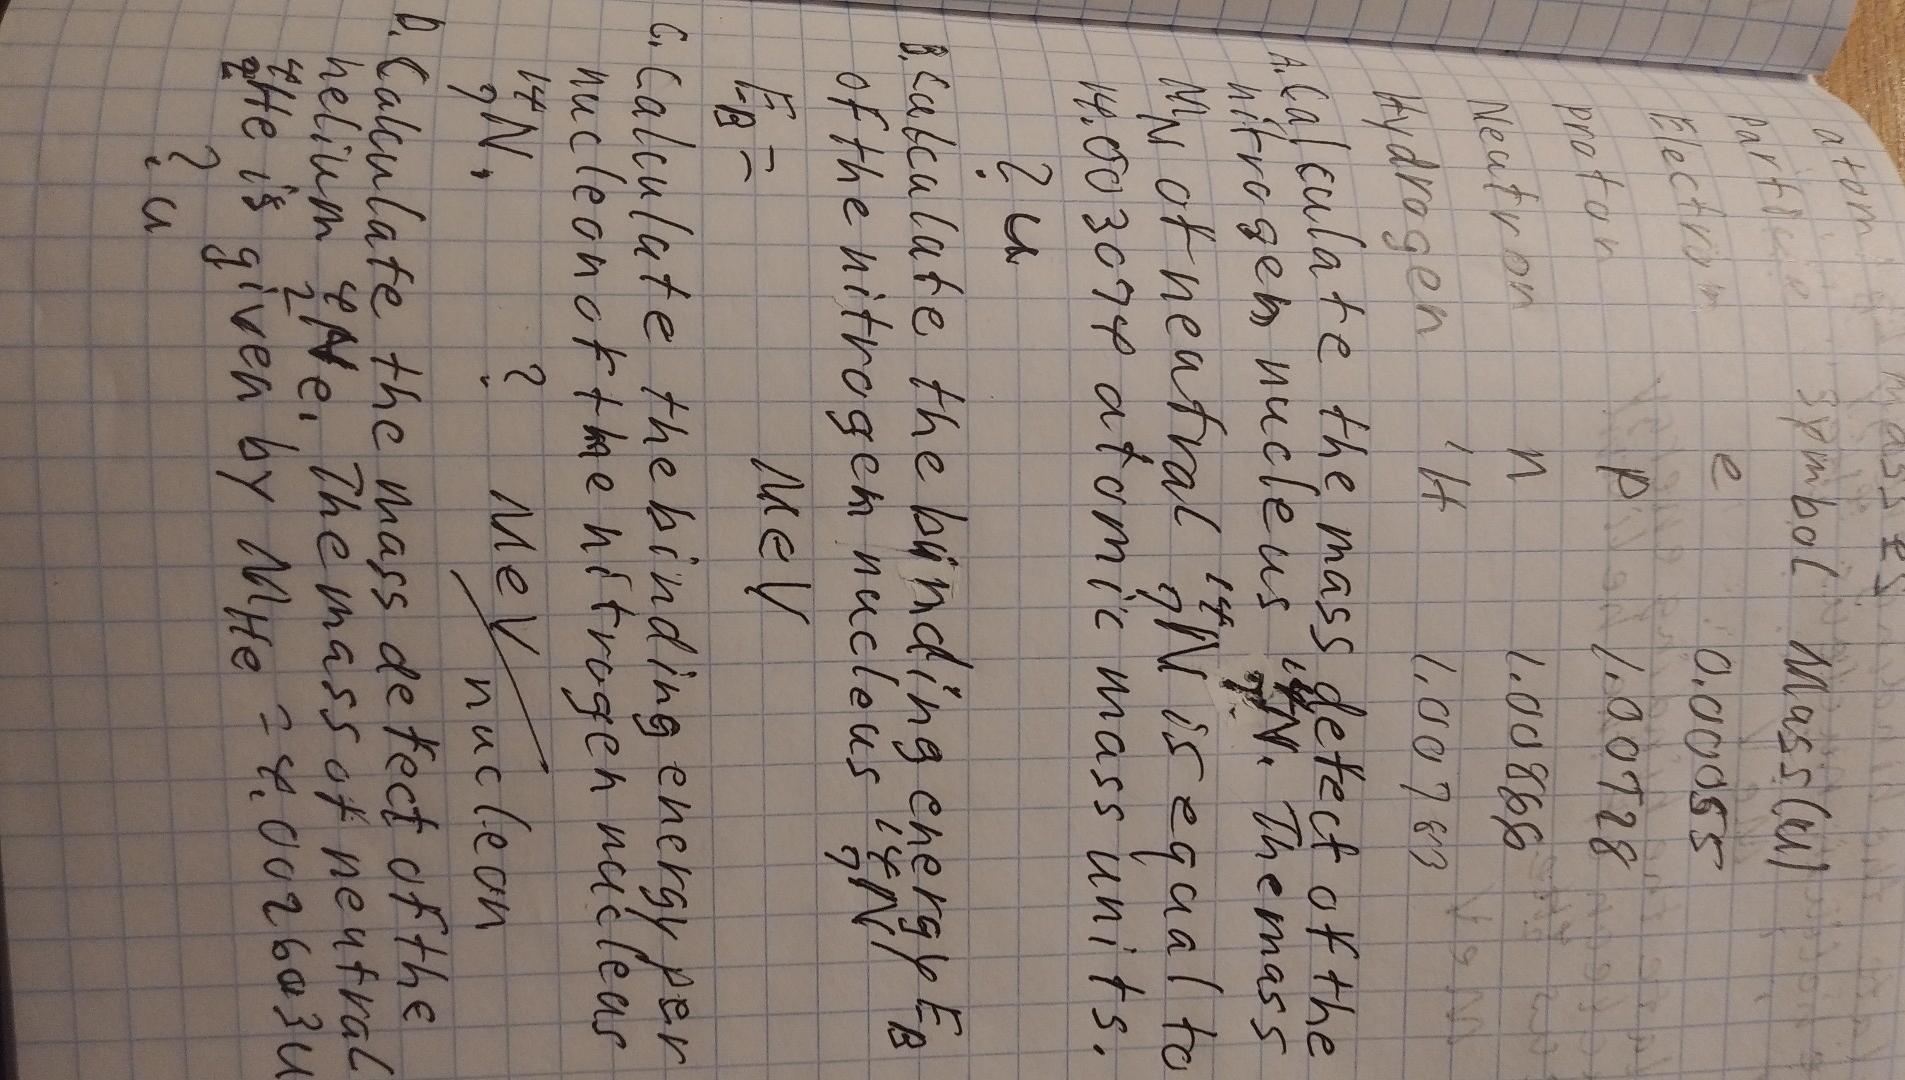 atomi masses
Particle Symbol Mass(u)
Electron e 0.00055
proton p 1.00728
Neutron n 1.00866
Hydrogen ¹H 1.00783
A. Calculate the mass defect of the
nitrogen nucleus ¹⁴₇N. The mass
M_N of neutral ¹⁴₇N is equal to
14.003074 atomic mass units.
? u
B. Calculate the binding energy E_B
of the nitrogen nucleus ¹⁴₇N,
E_B = MeV
C. Calculate the binding energy per
nucleon of the nitrogen nucleus
¹⁴₇N. ? MeV/nucleon
D. Calculate the mass defect of the
helium ⁴₂He. The mass of neutral
⁴₂He is given by M_He = 4.002603u
? u